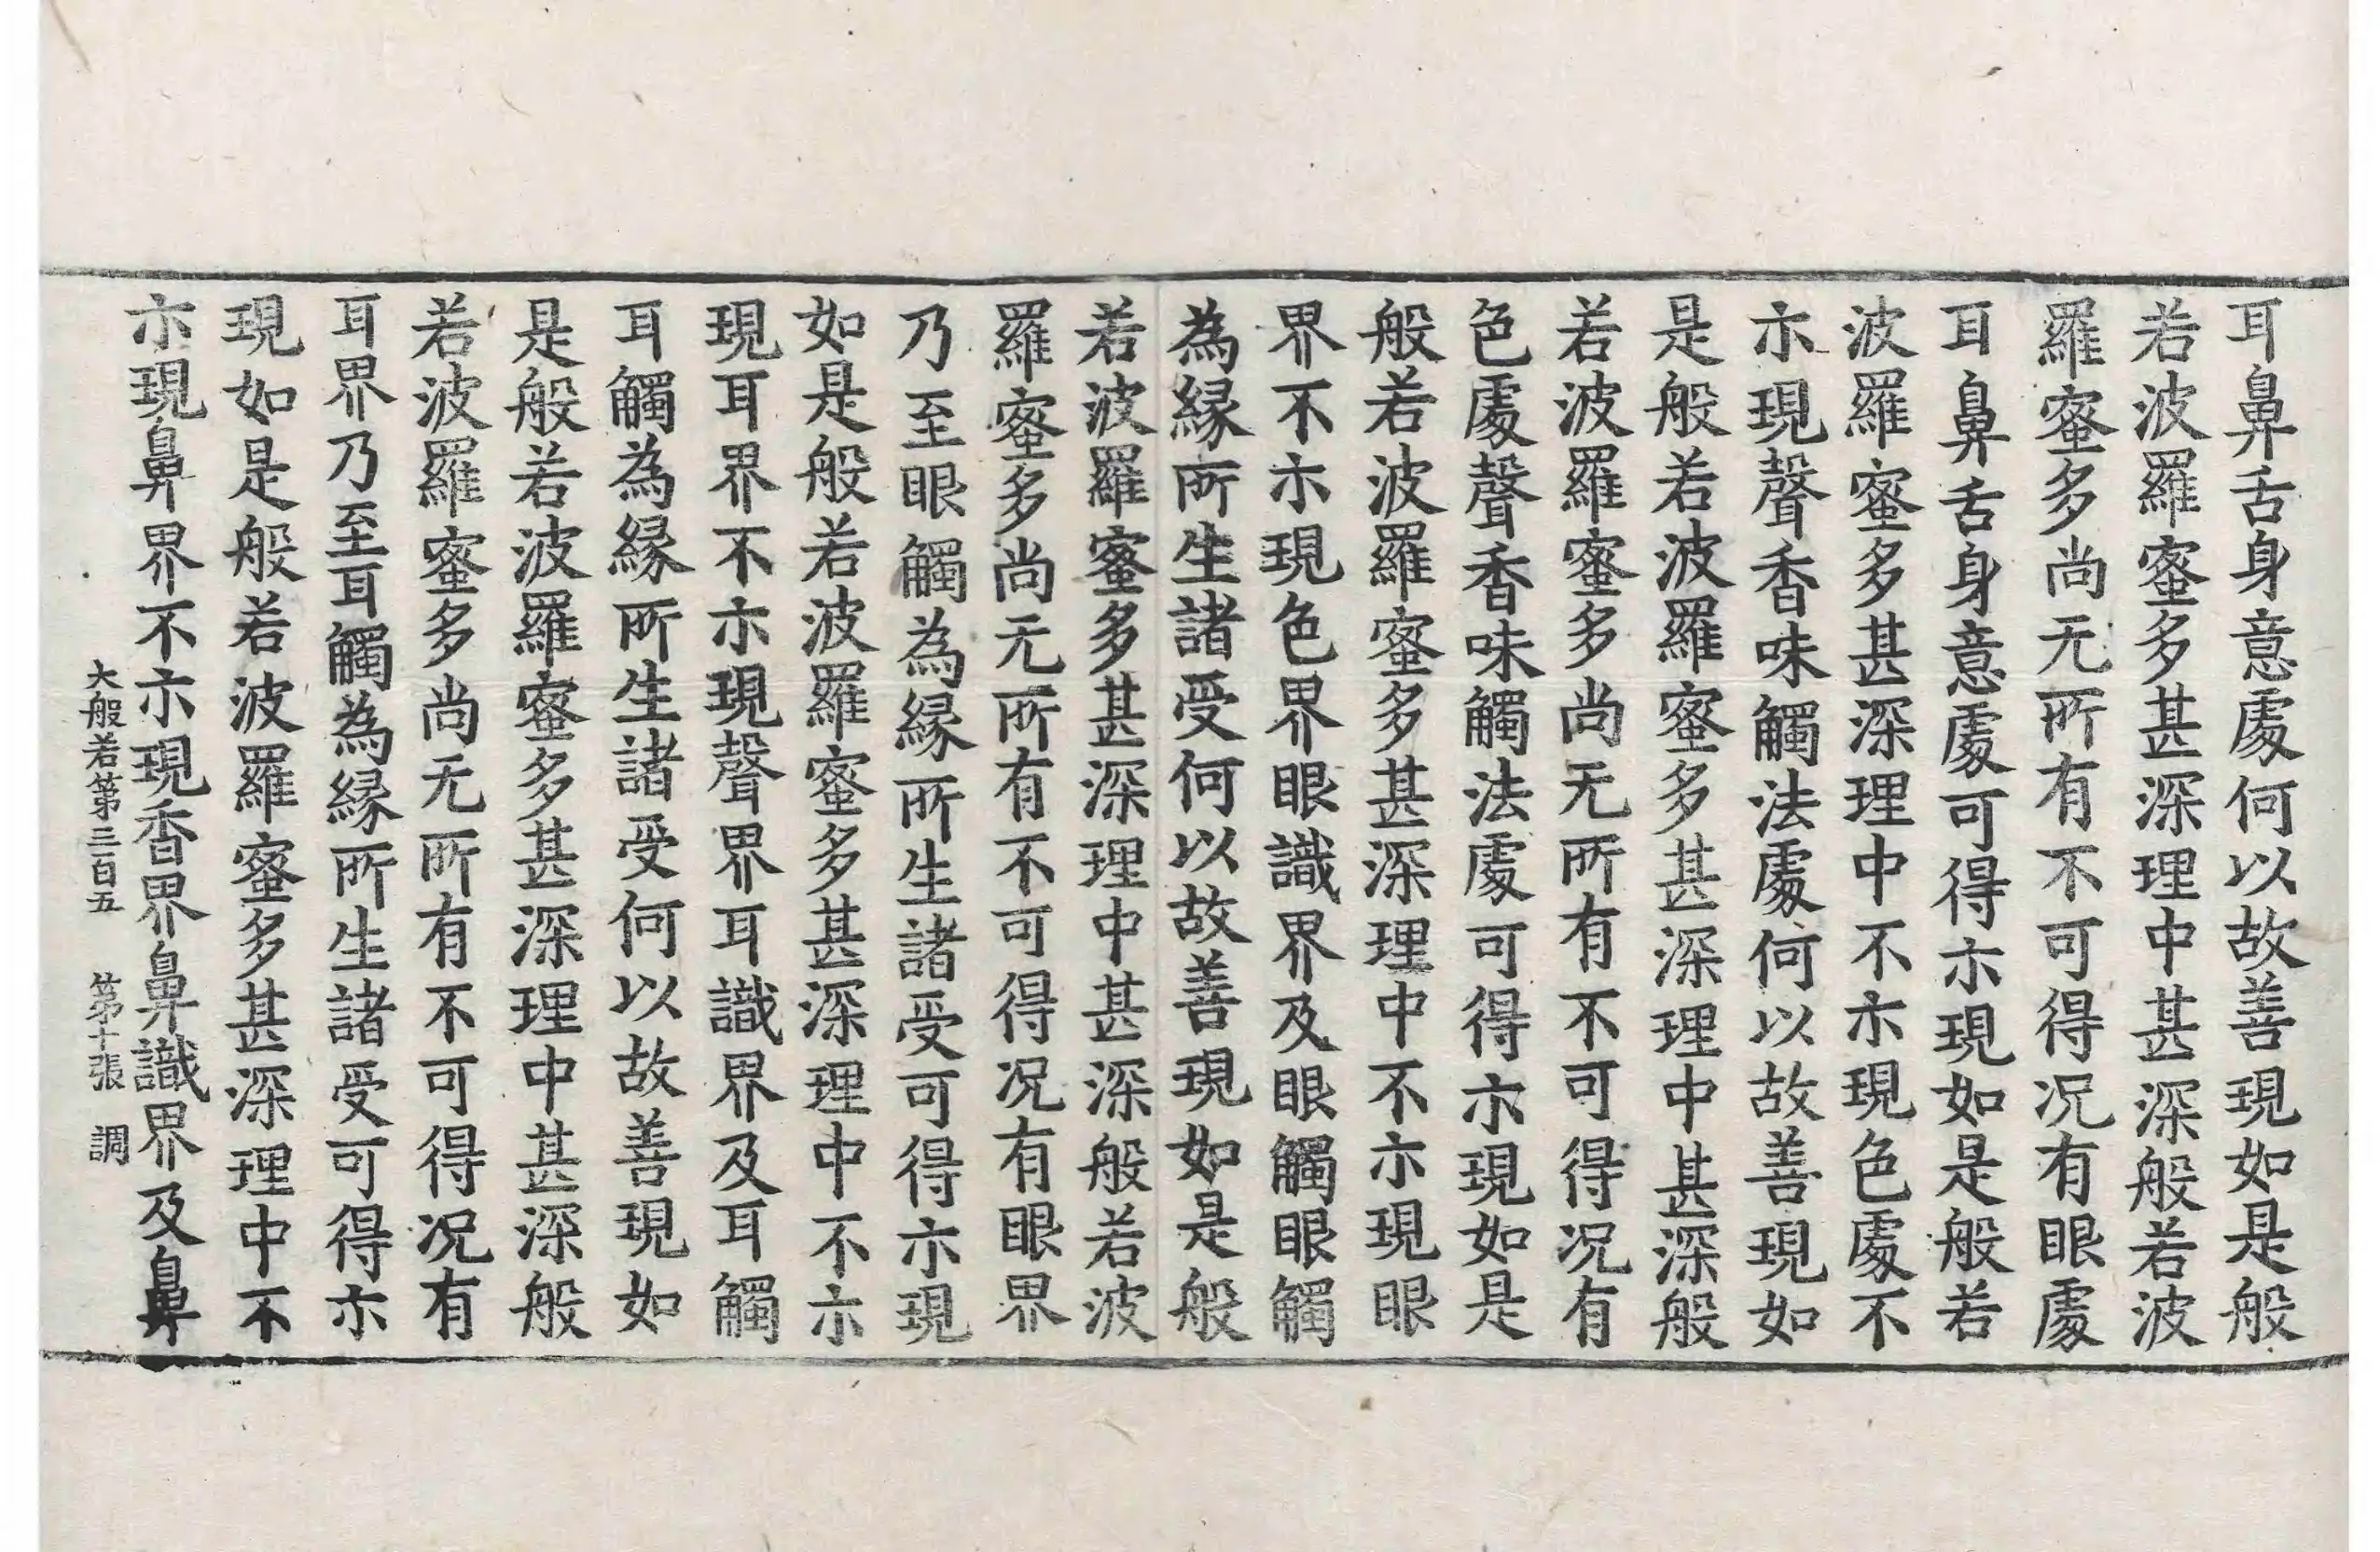 耳鼻舌身意處何以故善現如是般
若波羅蜜多甚深理中甚深般若波
羅蜜多尚无所有不可得况有眼處
耳鼻舌身意處可得示現如是般若
波羅蜜多甚深理中不示現色處不
示現聲香味觸法處何以故善現如
是般若波羅蜜多甚深理中甚深般
若波羅蜜多尚无所有不可得况有
色處聲香味觸法處可得示現如是
般若波羅蜜多甚深理中不示現眼
界不示現色界眼識界及眼觸眼觸
為縁所生諸受何以故善現如是般
若波羅蜜多甚深理中甚深般若波
羅蜜多尚无所有不可得况有眼界
乃至眼觸為縁所生諸受可得示現
如是般若波羅蜜多甚深理中不示
現耳界不示現聲界耳識界及耳觸
耳觸為縁所生諸受何以故善現如
是般若波羅蜜多甚深理中甚深般
若波羅蜜多尚无所有不可得况有
耳界乃至耳觸為縁所生諸受可得示
現如是般若波羅蜜多甚深理中不
示現鼻界不示現香界鼻識界及鼻
大般若第三百五 第十張 調